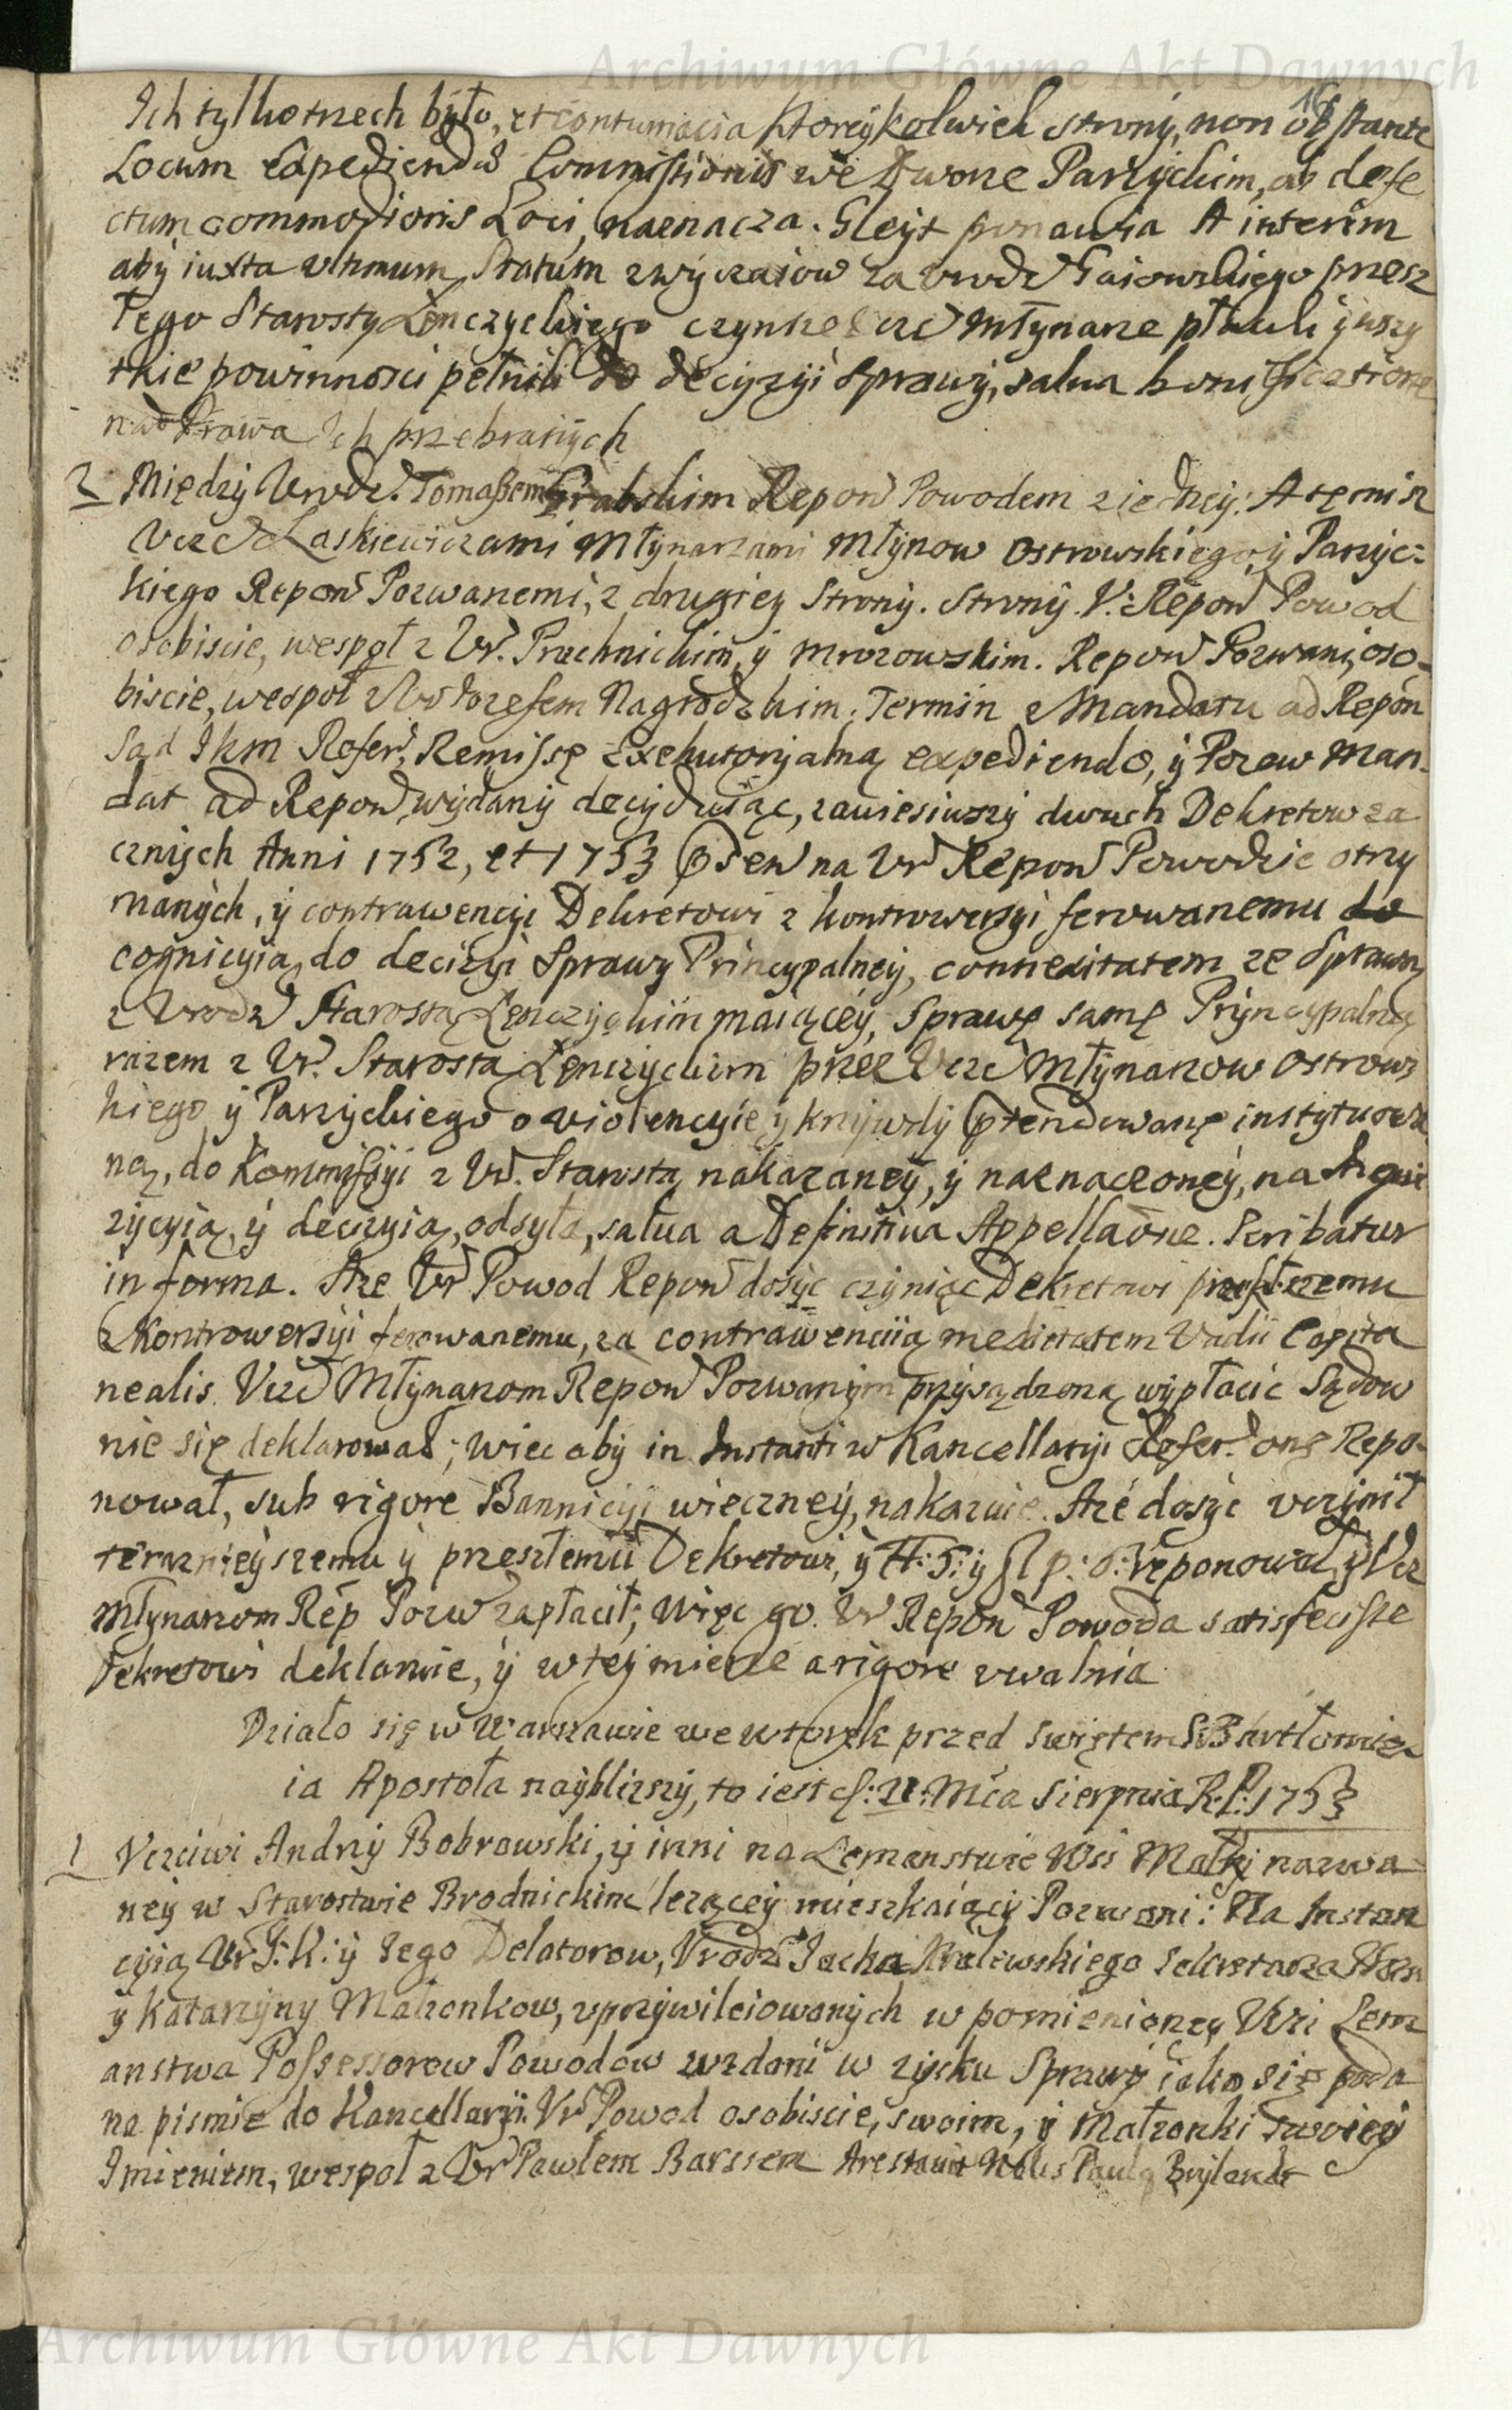 Archiwum Główne Akt Dawnych
Ich tylko trzech było, et contumacia ktoreykolwiek strony, non obstante
Locum Expediendæ Commissionis we Dworze Parzyckim, ob defe
ctum commodioris Loci, naznacza. Gleyt ponawia A interim
aby iuxta ultimum Statum zwyczaiow za Urodz Gaiowskiego przesz
łego Starosty Lenczyckiego czynsze Ucz Młynarze płacili y wszy
tkie powinnosci pełnili do decyzyi Sprawy, salva bonificatione
nad Prawa Ich przebranych
2 Między Urodz. Tomaszem Grabskim Repon Powodem z iedney: A temisz
Ucz Laskiewiczami Młynarzami Młynow Ostrowskiego, y Parzyc:
kiego Repon Pozwanemi, z drugiey Strony. Strony. V: Repon Powod
osobiscie, wespoł z Ur. Pruchnickim, y Mrozowskim. Repon Pozwani, oso-
biscie, wespoł z Ur Jozefem Nagrodzkim. Termin z Mandatu ad Repon
Sąd JKM Refer, Remissę Exekutoryalną expediendo, y Pozew Man-
dat ad Repon wydany decyduiąc, zawiesiwszy dwuch Dekretow za
cznych Anni 1752, et 1753 na Ur Repon Powodzie otrzy
manych, y contrawencyi Dekretowi z kontrowersyi ferowanemu
cognicyią, do decizyi Sprawy Pryncypalney, connexitatem ze Sprawą
z Urodz Starostą Lenczyckim maiącey, Sprawę samę Pryncypalną
razem z Ur. Starostą Lenczyckim przez Ucz Młynarzow Ostrows
kiego y Parzyckiego o violencyie y krzywdy ptendowane instytuowa
ną, do Kommissyi z Ur. Starostą nakazaney, y naznaczoney, na
zycyią, y decizyią, odsyła, salva a Definitiva Appellaone. Scribatur
in forma. Aze Ur Powod Repon dosyc czyniąc Dekretowi przeszłemu
z Kontrowersyi ferowanemu, za contrawencyią medietatem Vadii Capita
nealis Ucz Młynarzom Repon Pozwanym przysądzoną wypłacic Sądow
nie się deklarował; wiec aby in Instanti w Kancellaryi Refer. onę Repo-
nował, sub rigore Bannicyi wieczney, nakazuie. Aże dosyc uczynił
terazneyszemu y przeszłemu Dekretowi, y H: T: y p: o: reponował, y Ucz
Młynarzom Rep Pozw zapłacił; Więc go Ur Repon Powoda satisfecisse
Dekretowi deklaruie, y w tey mierze a rigore uwalnia.
Działo się w Warszawie we wtorek przed swiętem S Bartłomie
ia Apostoła naybliszszy, to iest d: 21: Mca Sierpnia R. P. 1753
1 Uczciwi Andrzy Bobrowski, y inni na Lemanstwie Wsi Małki nazwa
ney w Starostwie Brodnickim lezącey mieszkaiący Pozwani: Na Instan
cyią Ur J: K: y Jego Delatorow, Urodz Jacka Kralewskiego Sekretarza
y Katarzyny Małzonkow, uprzywileiowanych w pomienioney Wsi Lem
anstwa Possessorow Powodow wzdani w zysku Sprawy iako się poda
na pismie do Kancellaryi. Ur Powod osobiscie, swoim, y Małzonki swoiey
Imieniem, wespoł z Ur Pawłem Barssem
Archiwum Główne Akt Dawnych